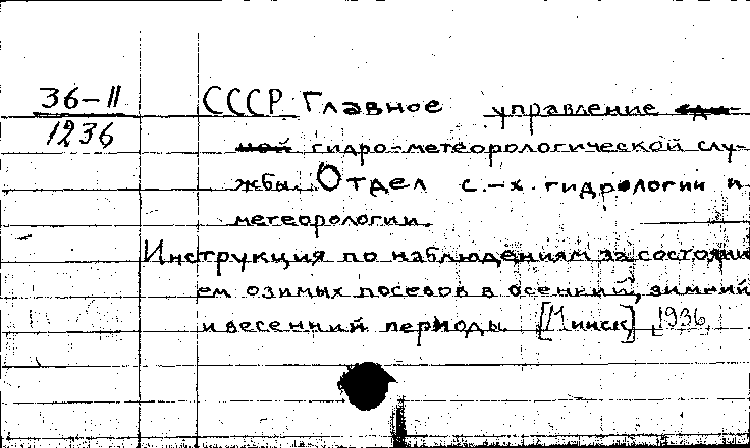 36-II
1236
СССР Главное управление еди-
ной гидро-метеорологической слу-
жбы. Отдел с.-х. гидрологии и
метеорологии.
Инструкция по наблюдениям за состояни
ем озимых посевов в осенний, зимний
и весенний периоды. [Минск], 1936.